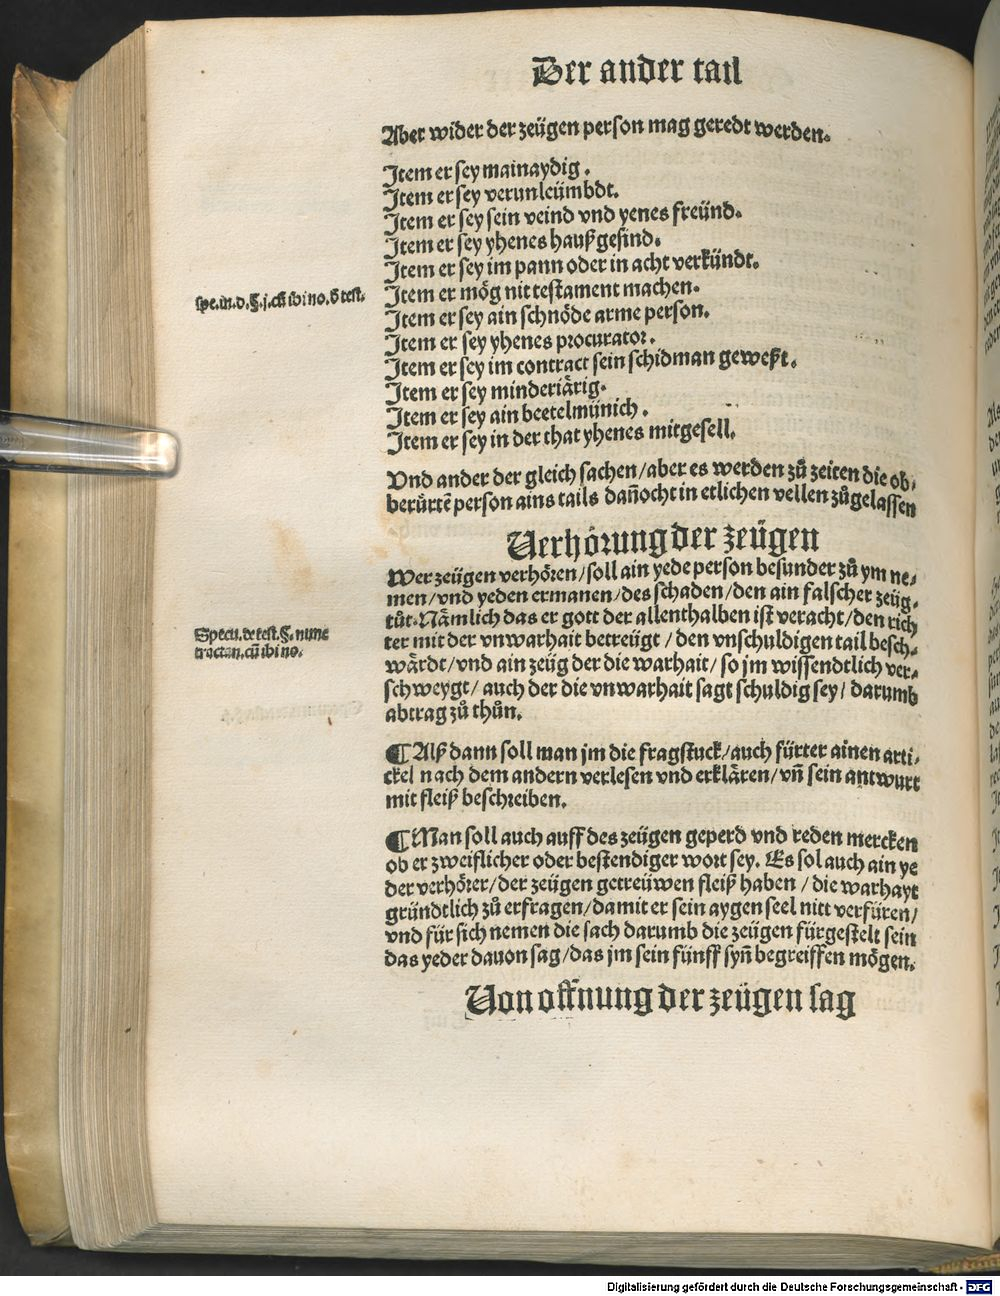 Der ander tail
Aber wider der zeügen person mag geredt werden.
Item er sey mainaydig.
Item er sey verunleümbdt.
Item er sey sein veind vnd yenes freünd.
Item er sey yhenes haußgesind.
Item er sey im pann oder in acht verkündt.
spe.in.d.§.j.cũ ibi no.d̄ test.
Item er mög nit testament machen.
Item er sey ain schnöde arme person.
Item er sey yhenes procurator.
Item er sey im contract sein schidman geweßt.
Item er sey minderiärig.
Item er sey ain beetelmünich.
Item er sey in der that yhenes mitgesell.
Vnd ander der gleich sachen/aber es werden zů zeiten die ob,
berůrtẽ person ains tails dañocht in etlichen vellen zůgelassen
Verhörung der zeügen
Wer zeügen verhören/soll ain yede person besunder zů ym ne,
men/vnd yeden ermanen/des schaden/den ain falscher zeüg,
tůt. Nämlich das er gott der allenthalben ist veracht/den rich
ter mit der vnwarhait betreügt/den vnschuldigen tail besch,
wärdt/vnd ain zeüg der die warhait/so jm wissendtlich ver,
schweygt/auch der die vnwarhait sagt schuldig sey/darumb
abtrag zů thůn.
Specu.de test.§.nunc
tractan.cũ ibi no.
¶ Alß dann soll man jm die fragstuck/auch fürter ainen arti,
ckel nach dem andern verlesen vnd erklären/vñ sein antwurt
mit fleiß beschreiben.
¶ Man soll auch auff des zeügen geperd vnd reden mercken
ob er zweiflicher oder bestendiger wort sey. Es sol auch ain ye
der verhörer/der zeügen getreüwen fleiß haben/die warhayt
gründtlich zů erfragen/damit er sein aygen seel nitt verfüren/
vnd für sich nemen die sach darumb die zeügen fürgestelt sein
das yeder dauon sag/das jm sein fünff syñ begreiffen mögen.
Von offnung der zeügen sag
Digitalisierung gefördert durch die Deutsche Forschungsgemeinschaft - DFG